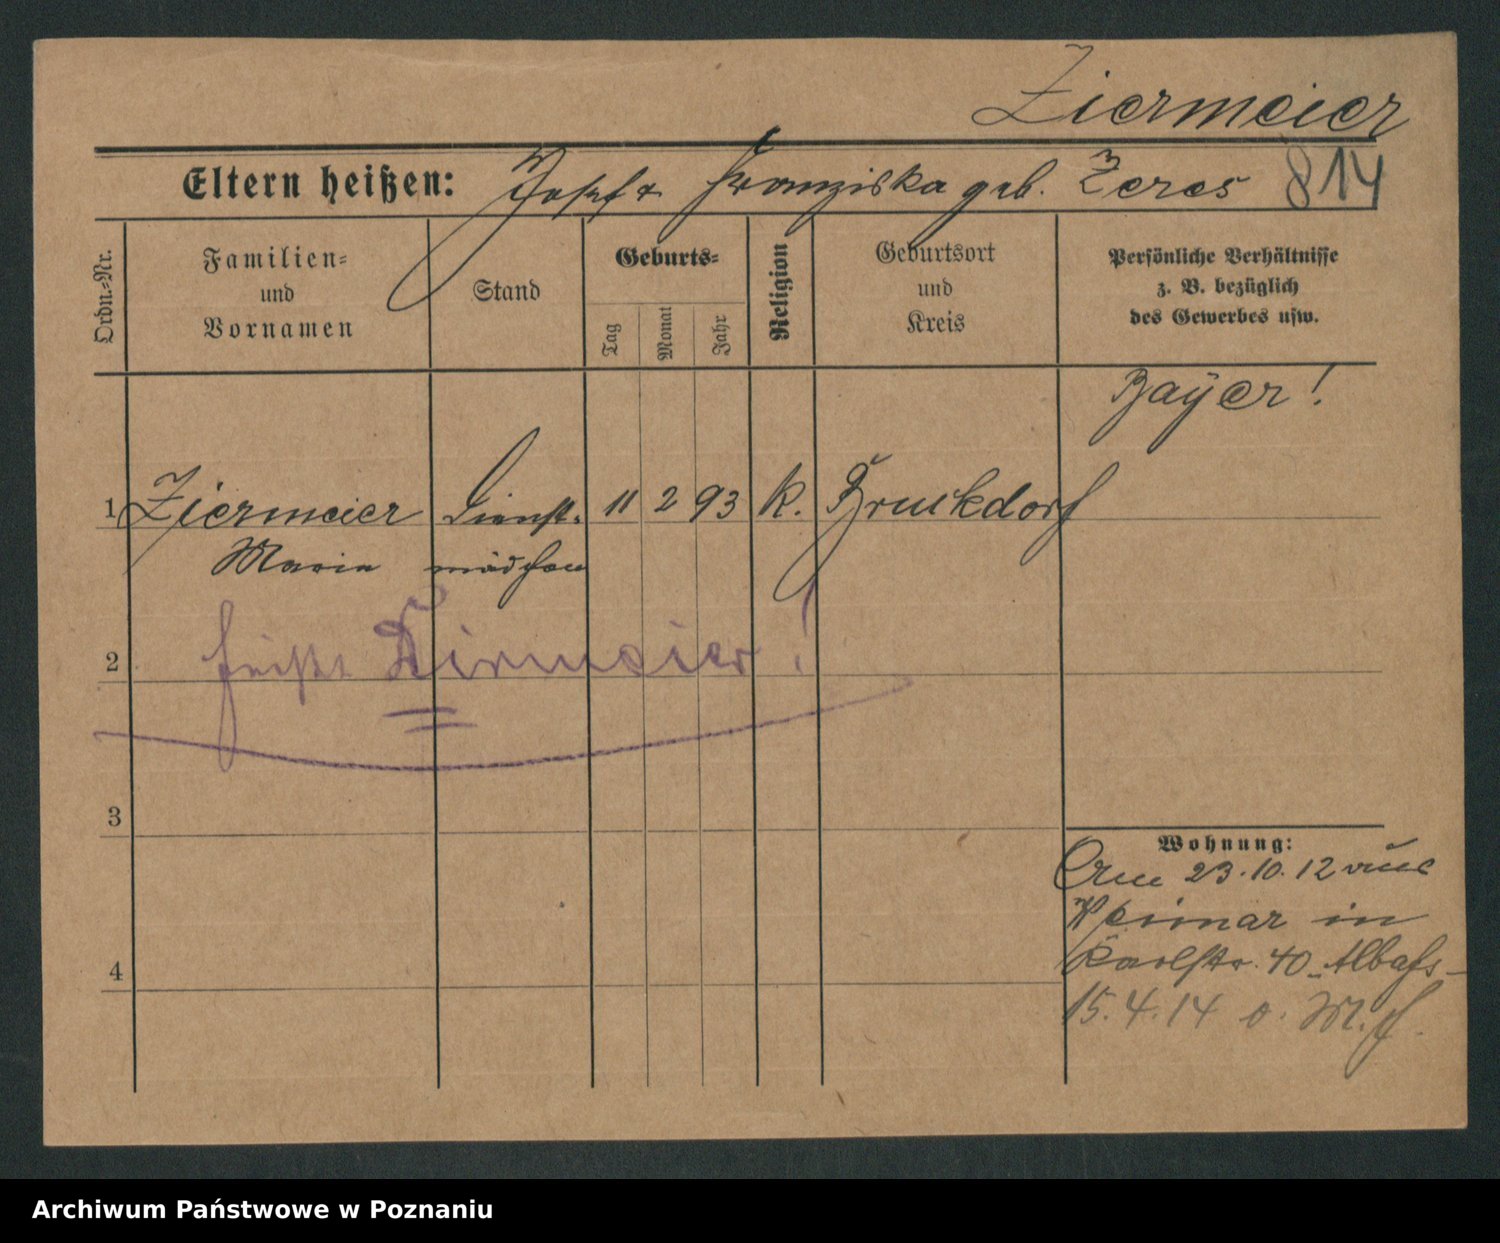 Ziermeier
814
Eltern heißen: Josef u Franziska geb. Zeres
Ordn.=Nr.
Familien=
und
Vornamen
Stand
Geburts=
Tag
Monat
Jahr
Religion
Geburtsort
und
Kreis
Persönliche Verhältnisse
z. B. bezüglich
des Gewerbes usw.
Bayer!
1 Ziermeier Dienst= 11 2 93 k. Bruckdorf
Maria mädchen
2 heißt Dirmeier!
3
4
Wohnung:
Am 23.10.12 aus
Weimar in
Karlstr. 40
15.4.14
Archiwum Państwowe w Poznaniu